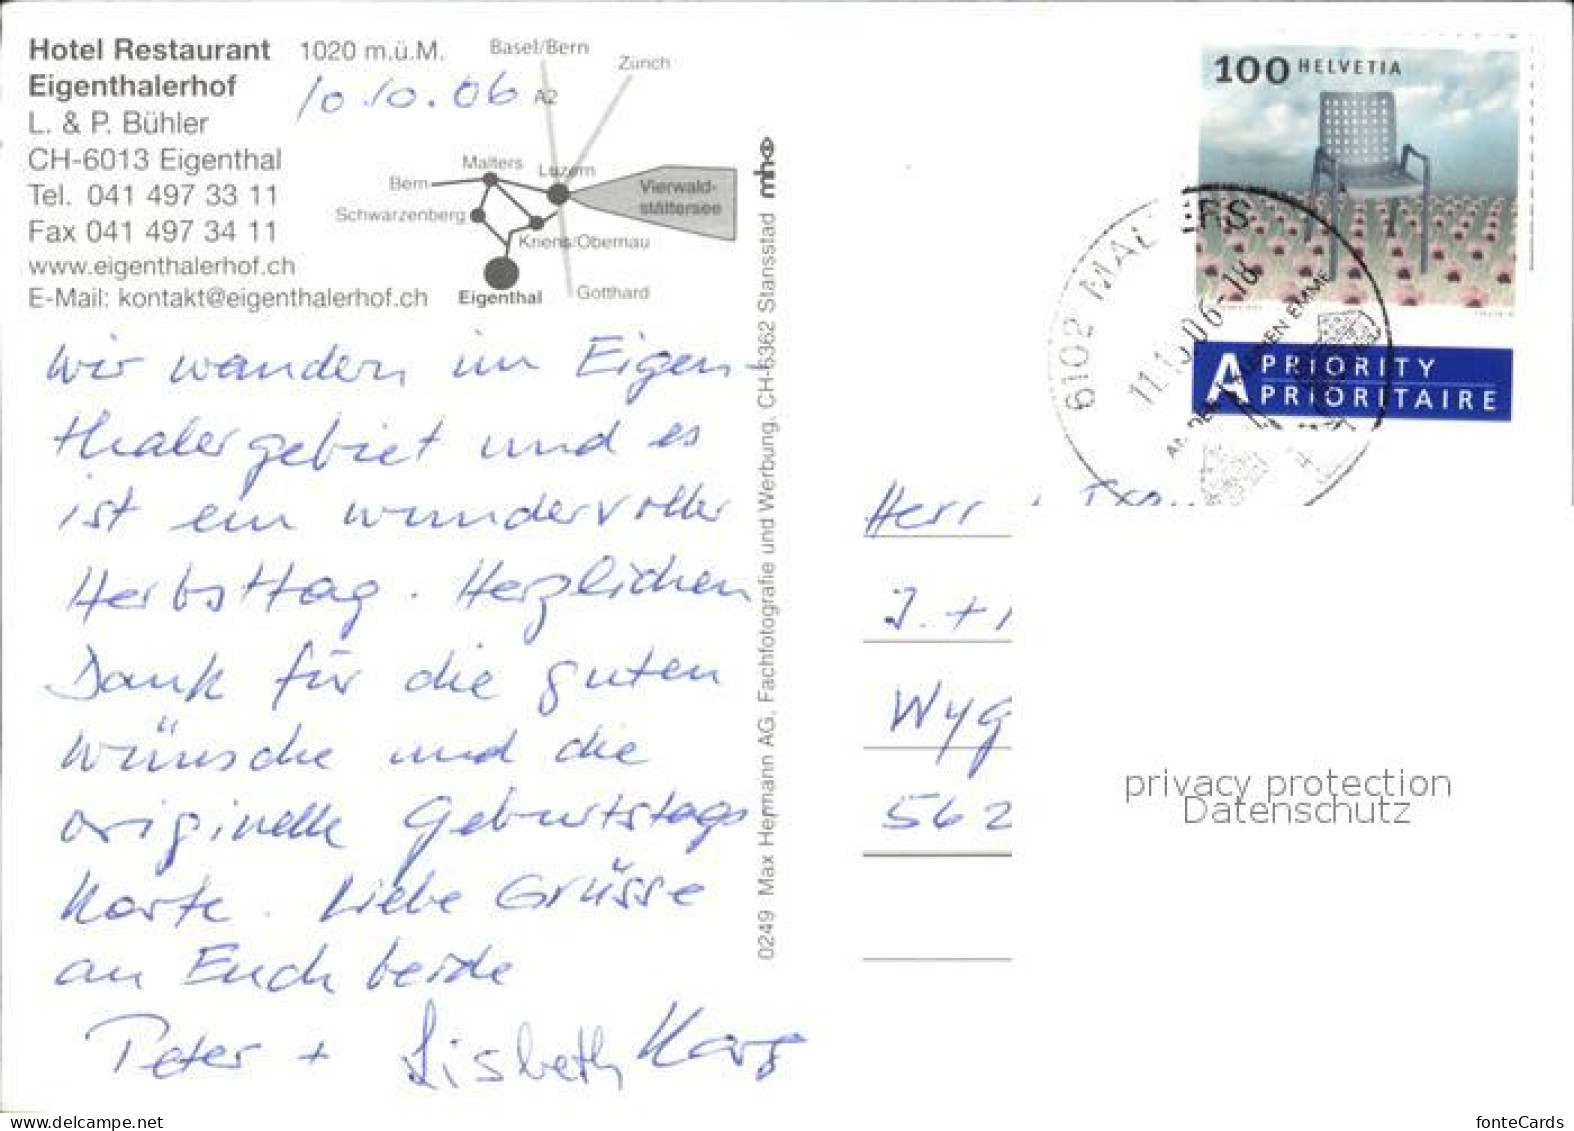 Hotel Restaurant 1020 m.ü.M.
Eigenthalerhof
L. & P. Bühler
CH-6013 Eigenthal
Tel. 041 497 33 11
Fax 041 497 34 11
www.eigenthalerhof.ch
E-Mail: kontakt@eigenthalerhof.ch
10.10.06
Basel/Bern
Zürich
A2
Malters
Luzern
Bern
Vierwald-
stättersee
Schwarzenberg
Kriens/Obernau
Eigenthal
Gotthard
Wir wandern im Eigen-
thalergebiet und es
ist ein wundervoller
Herbsttag. Herzlichen
Dank für die guten
Wünsche und die
originelle Geburtstags
Karte. Liebe Grüsse
an Euch beide
Peter + Lisbeth
0249 Max Hermann AG, Fachfotografie und Werbung, CH-6362 Stansstad mh
100 HELVETIA
6102 MALTERS
11.10.06-18
A PRIORITY
PRIORITAIRE
Herr
J. +
Wyg
562
privacy protection
Datenschutz
www.delcampe.net
fonteCards